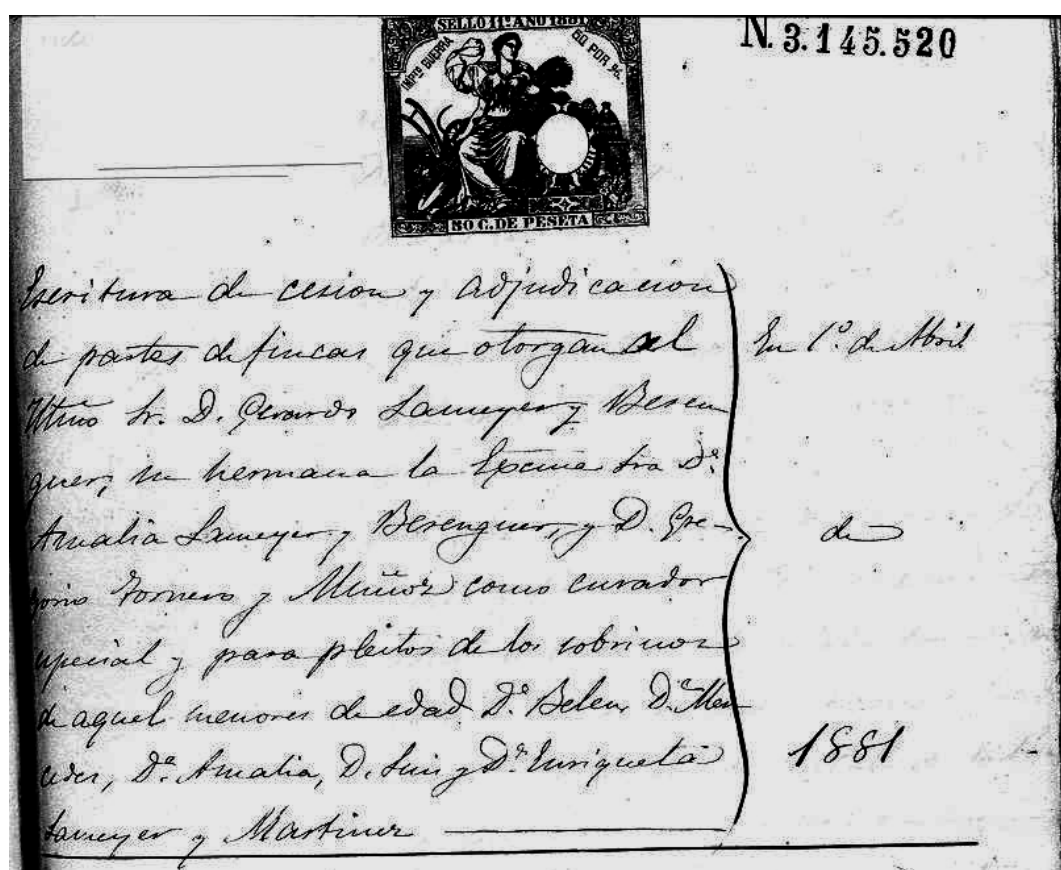 SELLO 11º AÑO 1881
IMPTO GUERRA
50 POR %
N. 3.145.520
50 C. DE PESETA
Escritura de cesion y adjudicacion
de partes de fincas que otorgan al
Iltmo Sr. D. Gerardo Lameyer y Beren
guer, su hermana la Excma Sra Dª
Amalia Lameyer y Berenguer, y D. Gre-
gorio Tornero y Muñoz como curador
especial y para pleitos de los sobrinos
de aquel menores de edad Dª Belen, Dª Mer
cedes, Dª Amalia, D. Luis y Dª Enriqueta
Lameyer y Martinez
En 1º de Abril
de
1881